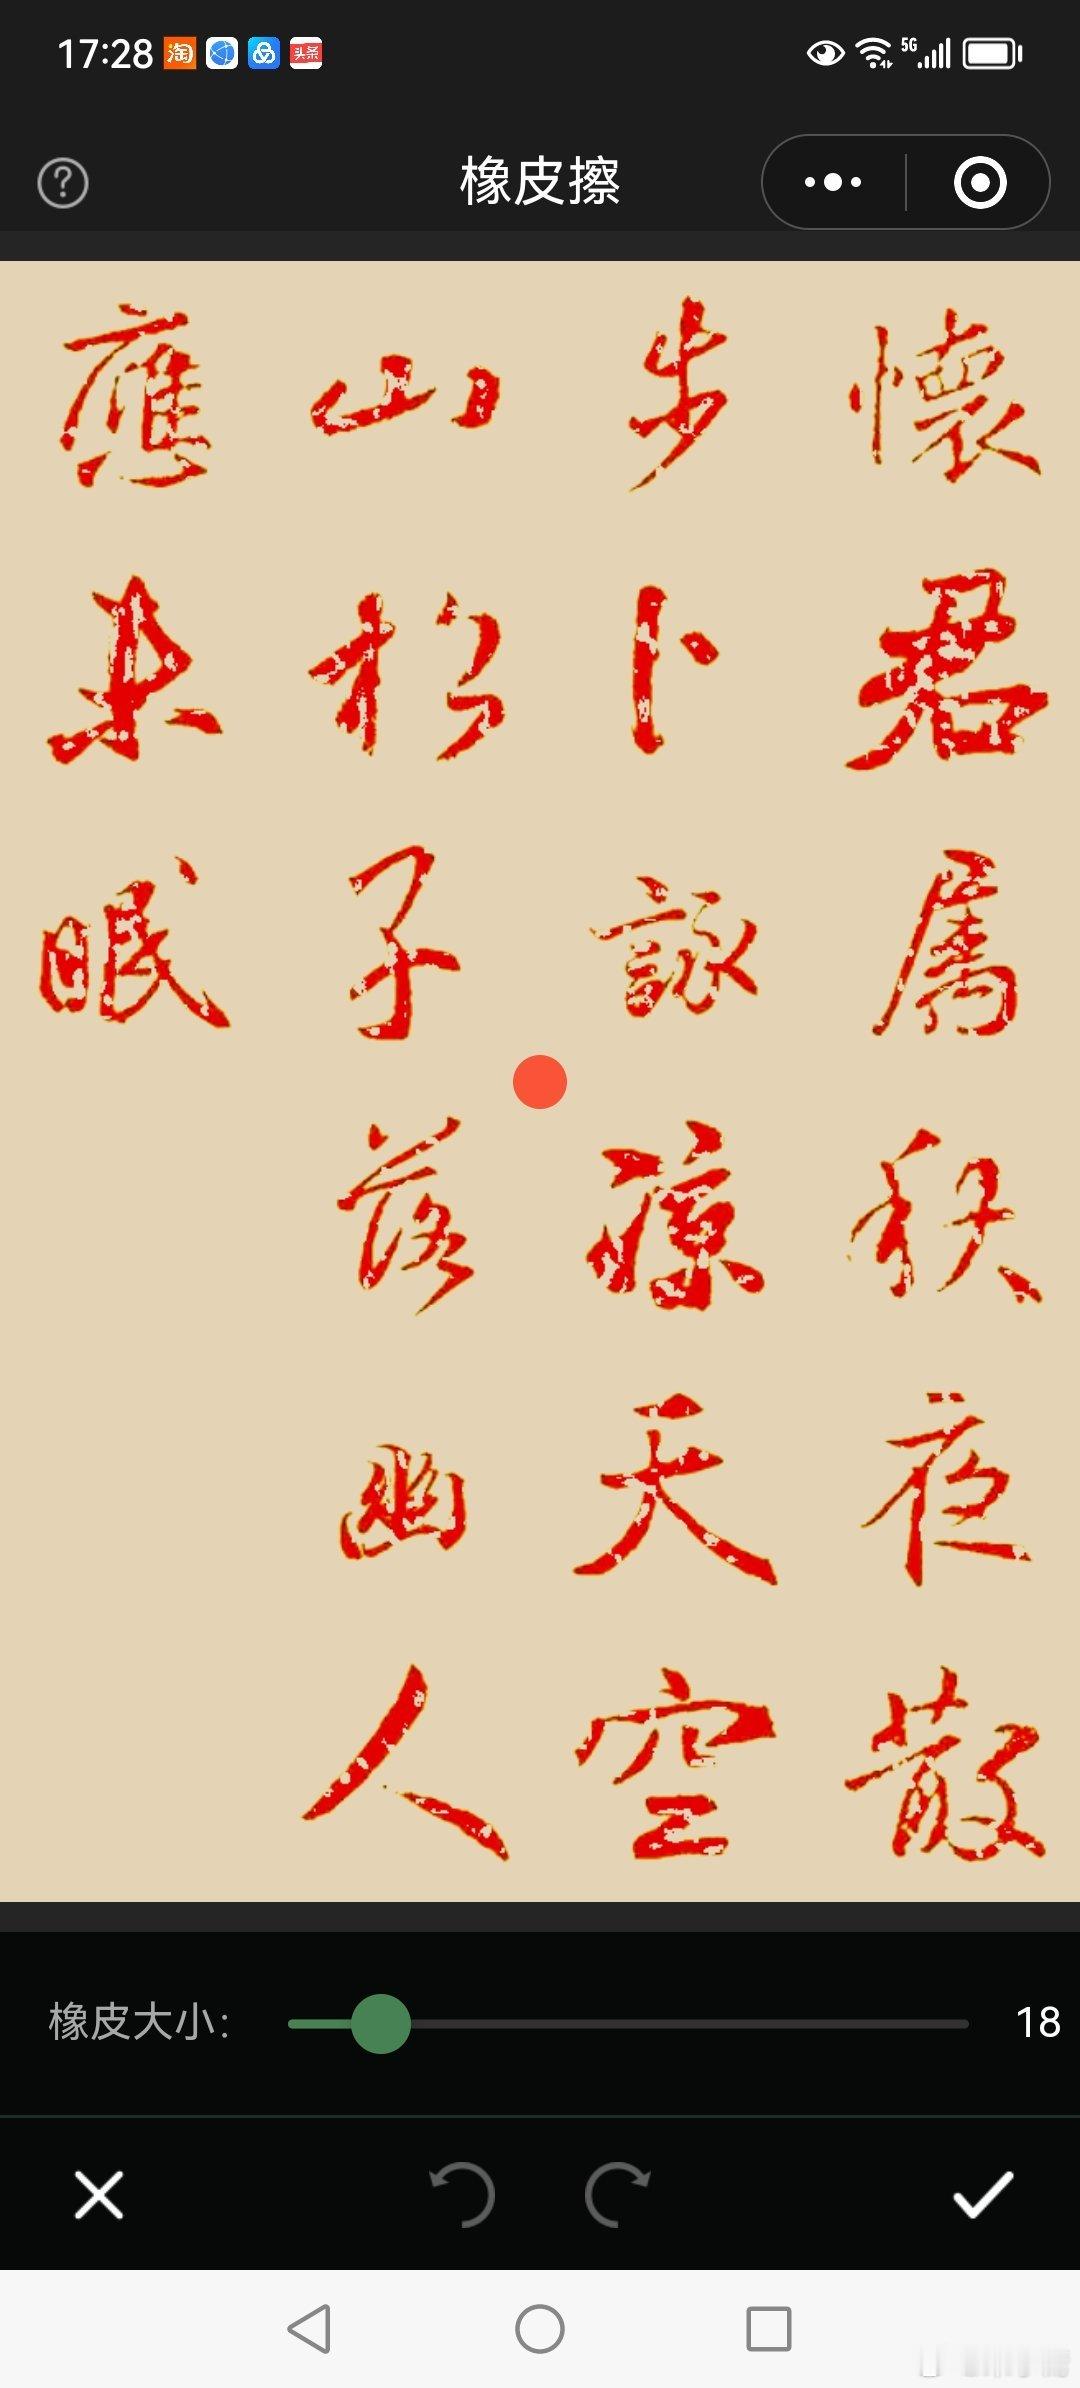 17:28 淘 头条 5G
橡皮擦
懷君屬秋夜散
步卜詠涼天空
山松子落幽人
應未眠
橡皮大小: 18